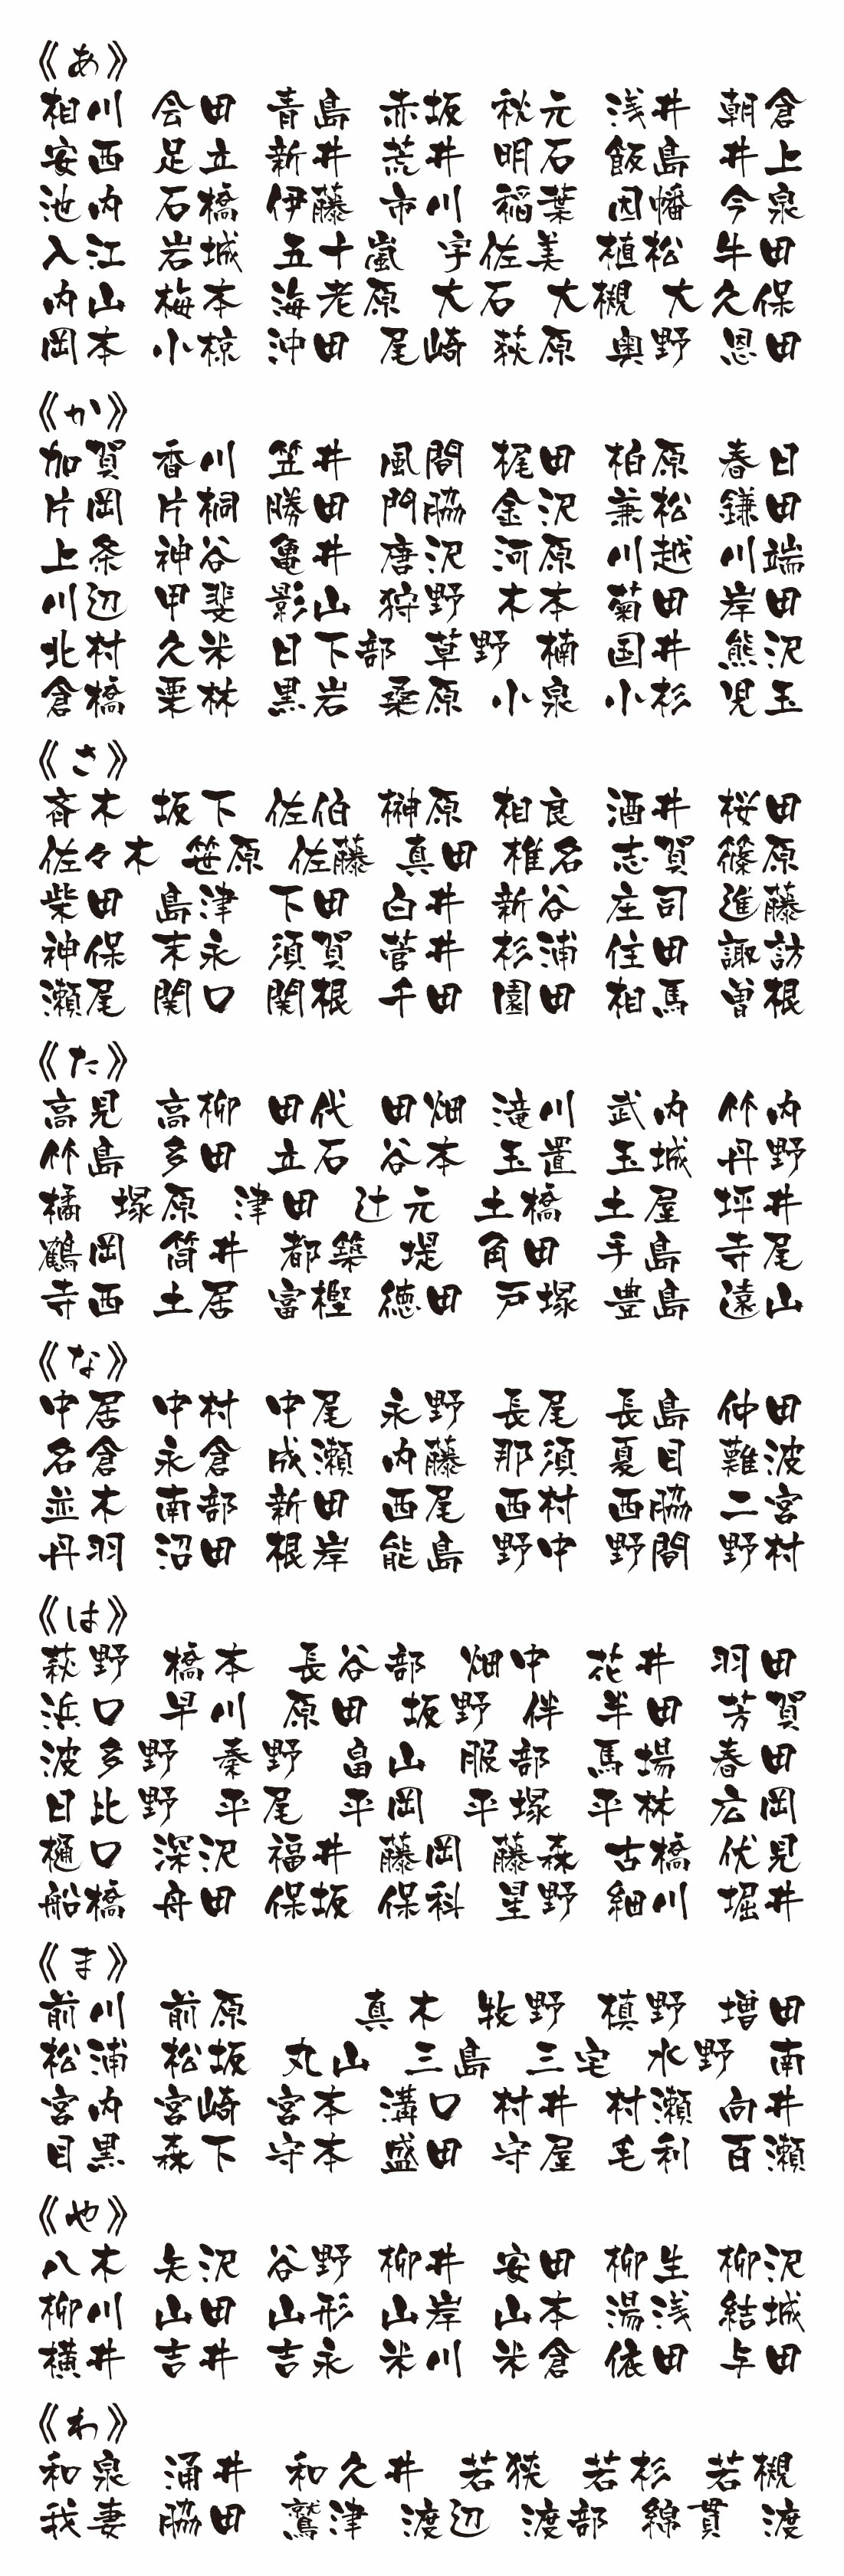 《あ》
相川 会田 青島 赤坂 秋元 浅井 朝倉
安西 足立 新井 荒井 明石 飯島 井上
池内 石橋 伊藤 市川 稲葉 因幡 今泉
入江 岩城 五十嵐 宇佐美 植松 牛田
内山 梅本 海老原 大石 大槻 大久保
岡本 小椋 沖田 尾崎 荻原 奥野 恩田
《か》
加賀 香川 笠井 風間 梶田 柏原 春日
片岡 片桐 勝田 門脇 金沢 兼松 鎌田
上条 神谷 亀井 唐沢 河原 川越 川端
川辺 甲斐 影山 狩野 木本 菊田 岸田
北村 久米 日下部 草野 楠 国井 熊沢
倉橋 栗林 黒岩 桑原 小泉 小杉 児玉
《さ》
斉木 坂下 佐伯 榊原 相良 酒井 桜田
佐々木 笹原 佐藤 真田 椎名 志賀 篠原
柴田 島津 下田 白井 新谷 庄司 進藤
神保 末永 須賀 菅井 杉浦 住田 諏訪
瀬尾 関口 関根 千田 園田 相馬 曽根
《た》
高見 高柳 田代 田畑 滝川 武内 竹内
竹島 多田 立石 谷本 玉置 玉城 丹野
橘 塚原 津田 辻元 土橋 土屋 坪井
鶴岡 筒井 都築 堤 角田 手島 寺尾
寺西 土居 富樫 徳田 戸塚 豊島 遠山
《な》
中居 中村 中尾 永野 長尾 長島 仲田
名倉 永倉 成瀬 内藤 那須 夏目 難波
並木 南部 新田 西尾 西村 西脇 二宮
丹羽 沼田 根岸 能島 野中 野間 野村
《は》
萩野 橋本 長谷部 畑中 花井 羽田
浜口 早川 原田 坂野 伴 半田 芳賀
波多野 秦野 畠山 服部 馬場 春田
日比野 平尾 平岡 平塚 平林 広岡
樋口 深沢 福井 藤岡 藤森 古橋 伏見
船橋 舟田 保坂 保科 星野 細川 堀井
《ま》
前川 前原 真木 牧野 槙野 増田
松浦 松坂 丸山 三島 三宅 水野 南
宮内 宮崎 宮本 溝口 村井 村瀬 向井
目黒 森下 守本 盛田 守屋 毛利 百瀬
《や》
八木 矢沢 谷野 柳井 安田 柳生 柳沢
柳川 山田 山形 山岸 山本 湯浅 結城
横井 吉井 吉永 米川 米倉 依田 与田
《わ》
和泉 涌井 和久井 若狭 若杉 若槻
我妻 脇田 鷲津 渡辺 渡部 綿貫 渡